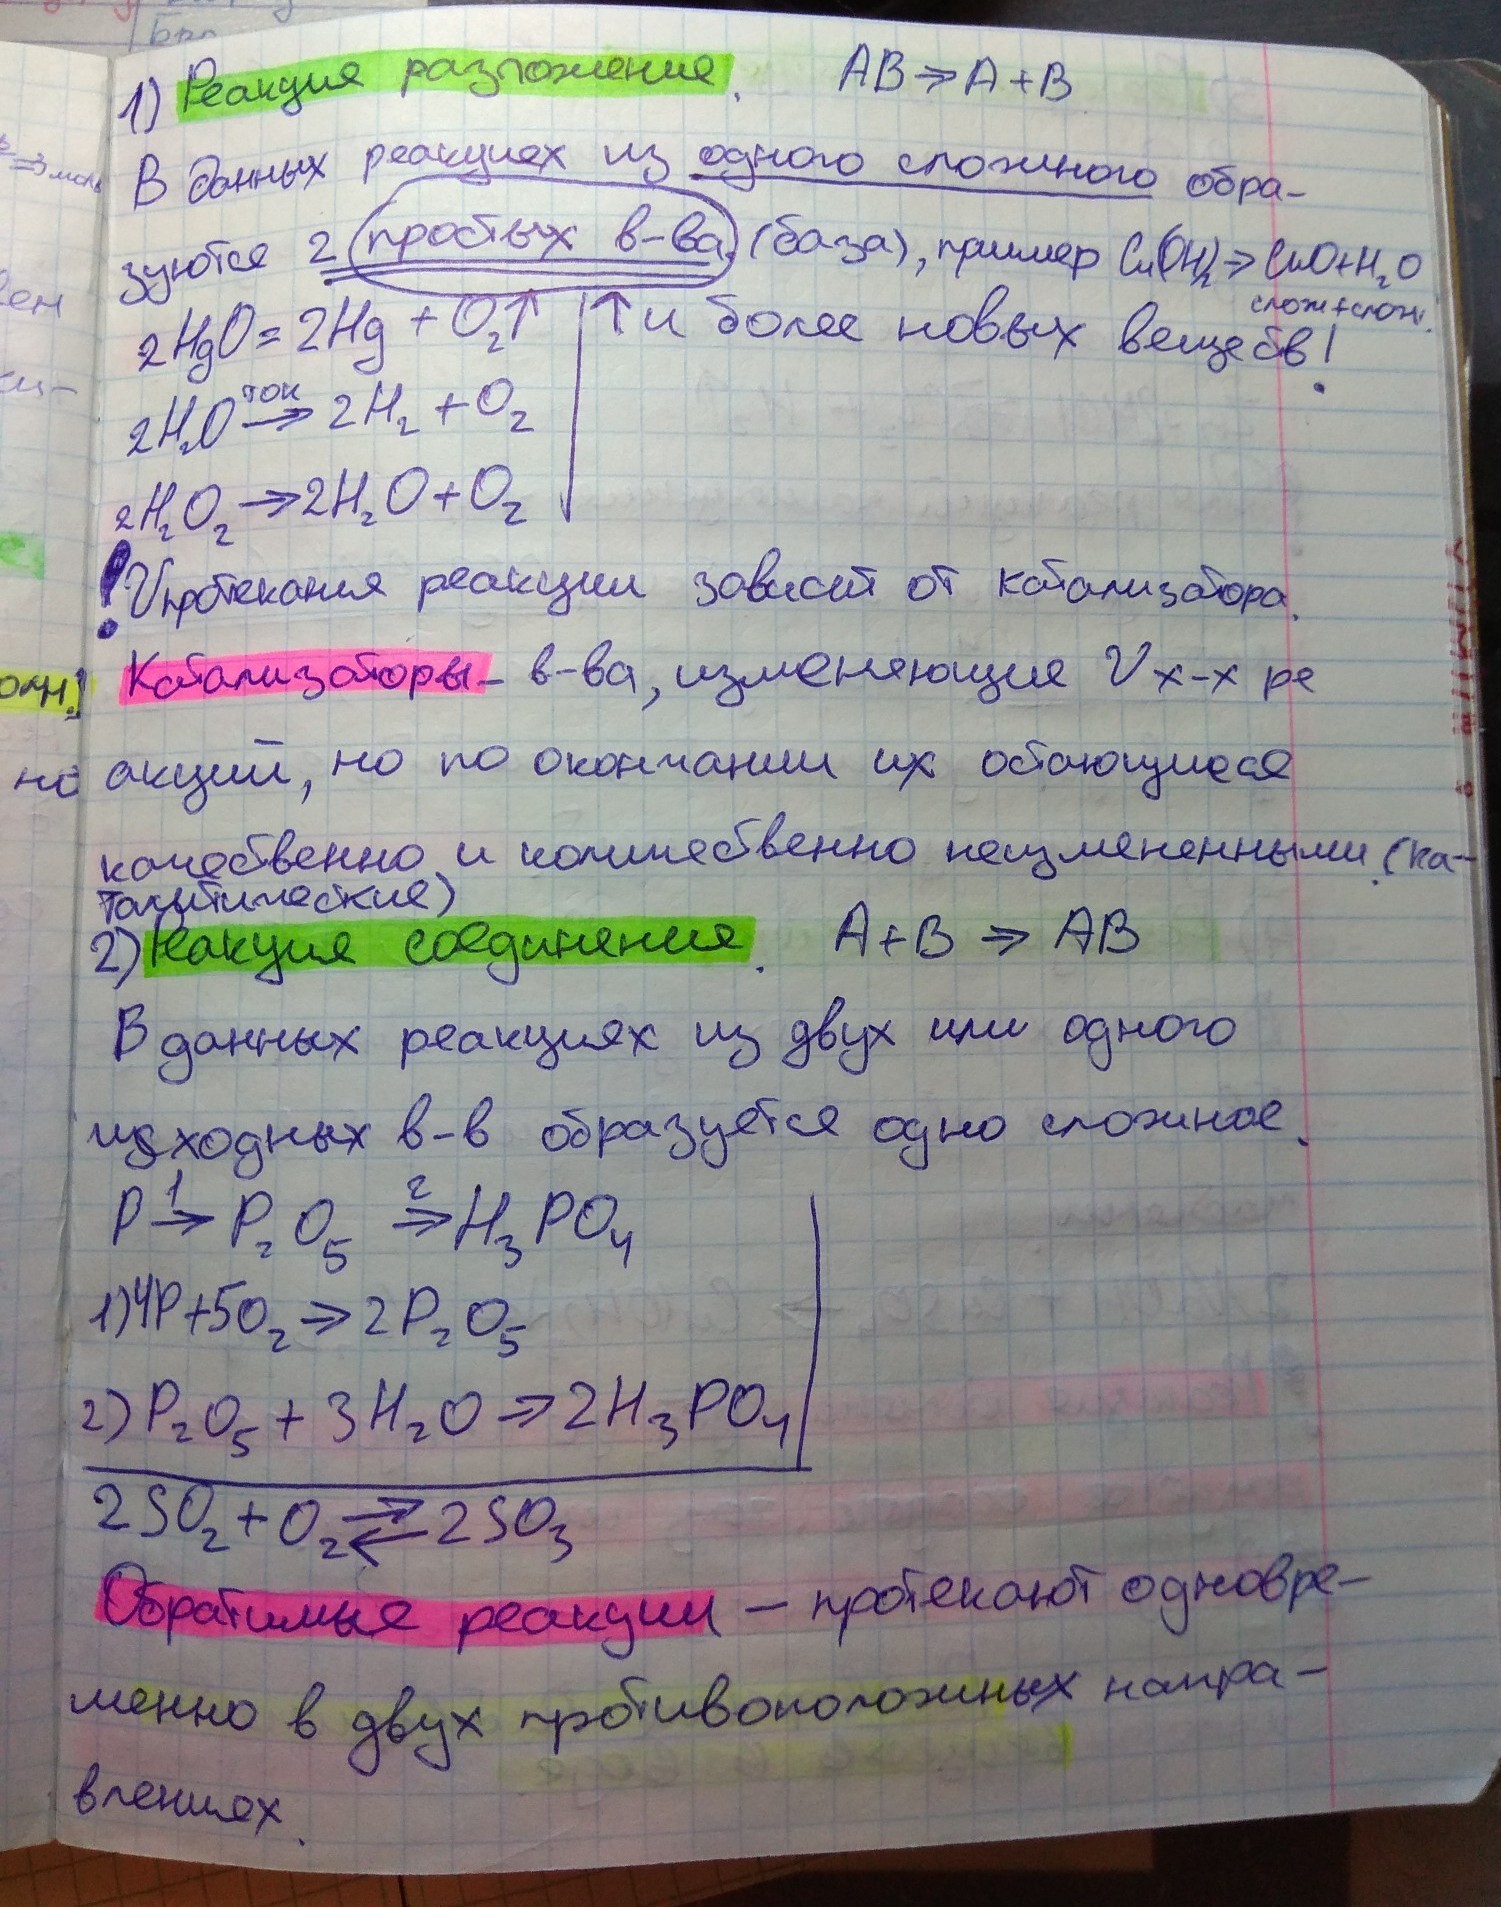 1) Реакция разложение. AB → A + B
В данных реакциях из одного сложного обра-
зуются 2 простых в-ва (база), пример Cu(OH)₂ → CuO+H₂O
слож+слож.
2HgO = 2Hg + O₂↑ ↑ и более новых веществ!
2H₂O ток→ 2H₂ + O₂
2H₂O₂ → 2H₂O + O₂
! V протекания реакции зависит от катализатора.
Катализаторы - в-ва, изменяющие V х-х ре
акций, но по окончании их остающиеся
качественно и количественно неизмененными. (ка-
талитические)
2) Реакция соединения. A+B → AB
В данных реакциях из двух или одного
исходных в-в образуется одно сложное.
P 1→ P₂O₅ 2→ H₃PO₄
1) 4P+5O₂ → 2P₂O₅
2) P₂O₅ + 3H₂O → 2H₃PO₄
2SO₂ + O₂ ⇄ 2SO₃
Обратимые реакции – протекают одновре-
менно в двух противоположных напра-
влениях.